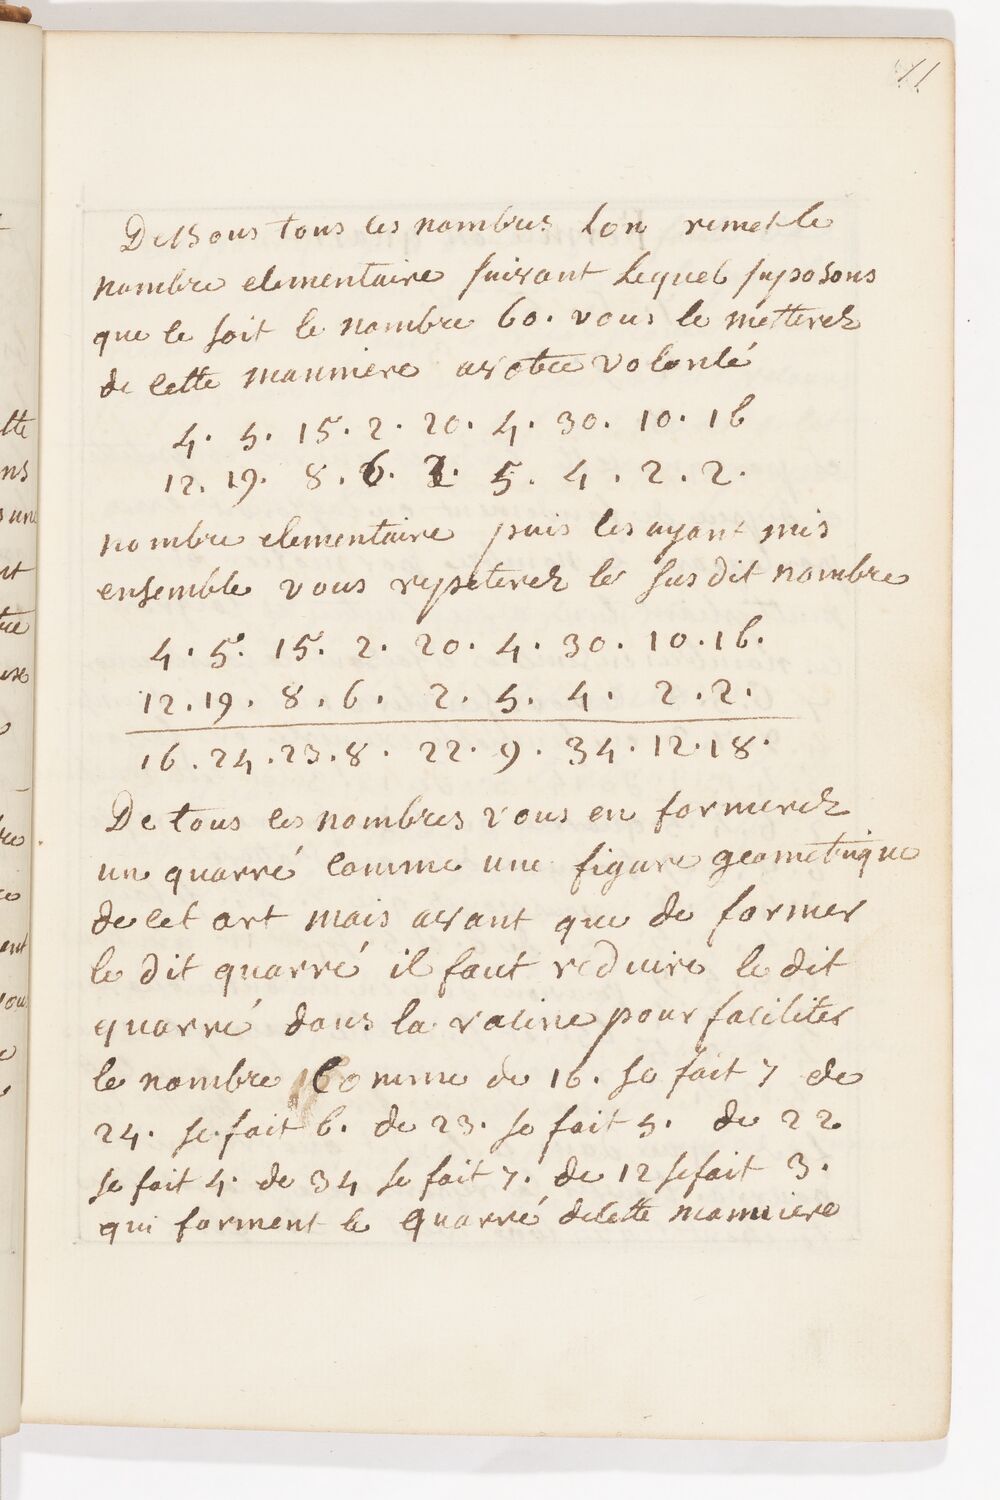 11
Dessous tous les nombres lon remet le
nombre elementaire suivant lequel suposons
que le soit le nombre 60. vous le metterez
de cette manniere avotre volonté
4. 5. 15. 2. 20. 4. 30. 10. 16
12. 19. 8. 6. 2. 5. 4. 2. 2.
nombre elementaire puis les ayant mis
ensemble vous repeterez le sus dit nombre
4. 5. 15. 2. 20. 4. 30. 10. 16.
12. 19. 8. 6. 2. 5. 4. 2. 2.
16. 24. 23. 8. 22. 9. 34. 12. 18.
De tous les nombres vous en formerez
un quarré comme une figure geometrique
de cet art mais avant que de former
le dit quarré il faut reduire le dit
quarré dans la racine pour faciliter
le nombre Comme de 16. se fait 7 de
24. se fait 6. de 23. se fait 5. de 22
se fait 4. de 34 se fait 7. de 12 se fait 3.
qui forment le quarré decette manniere